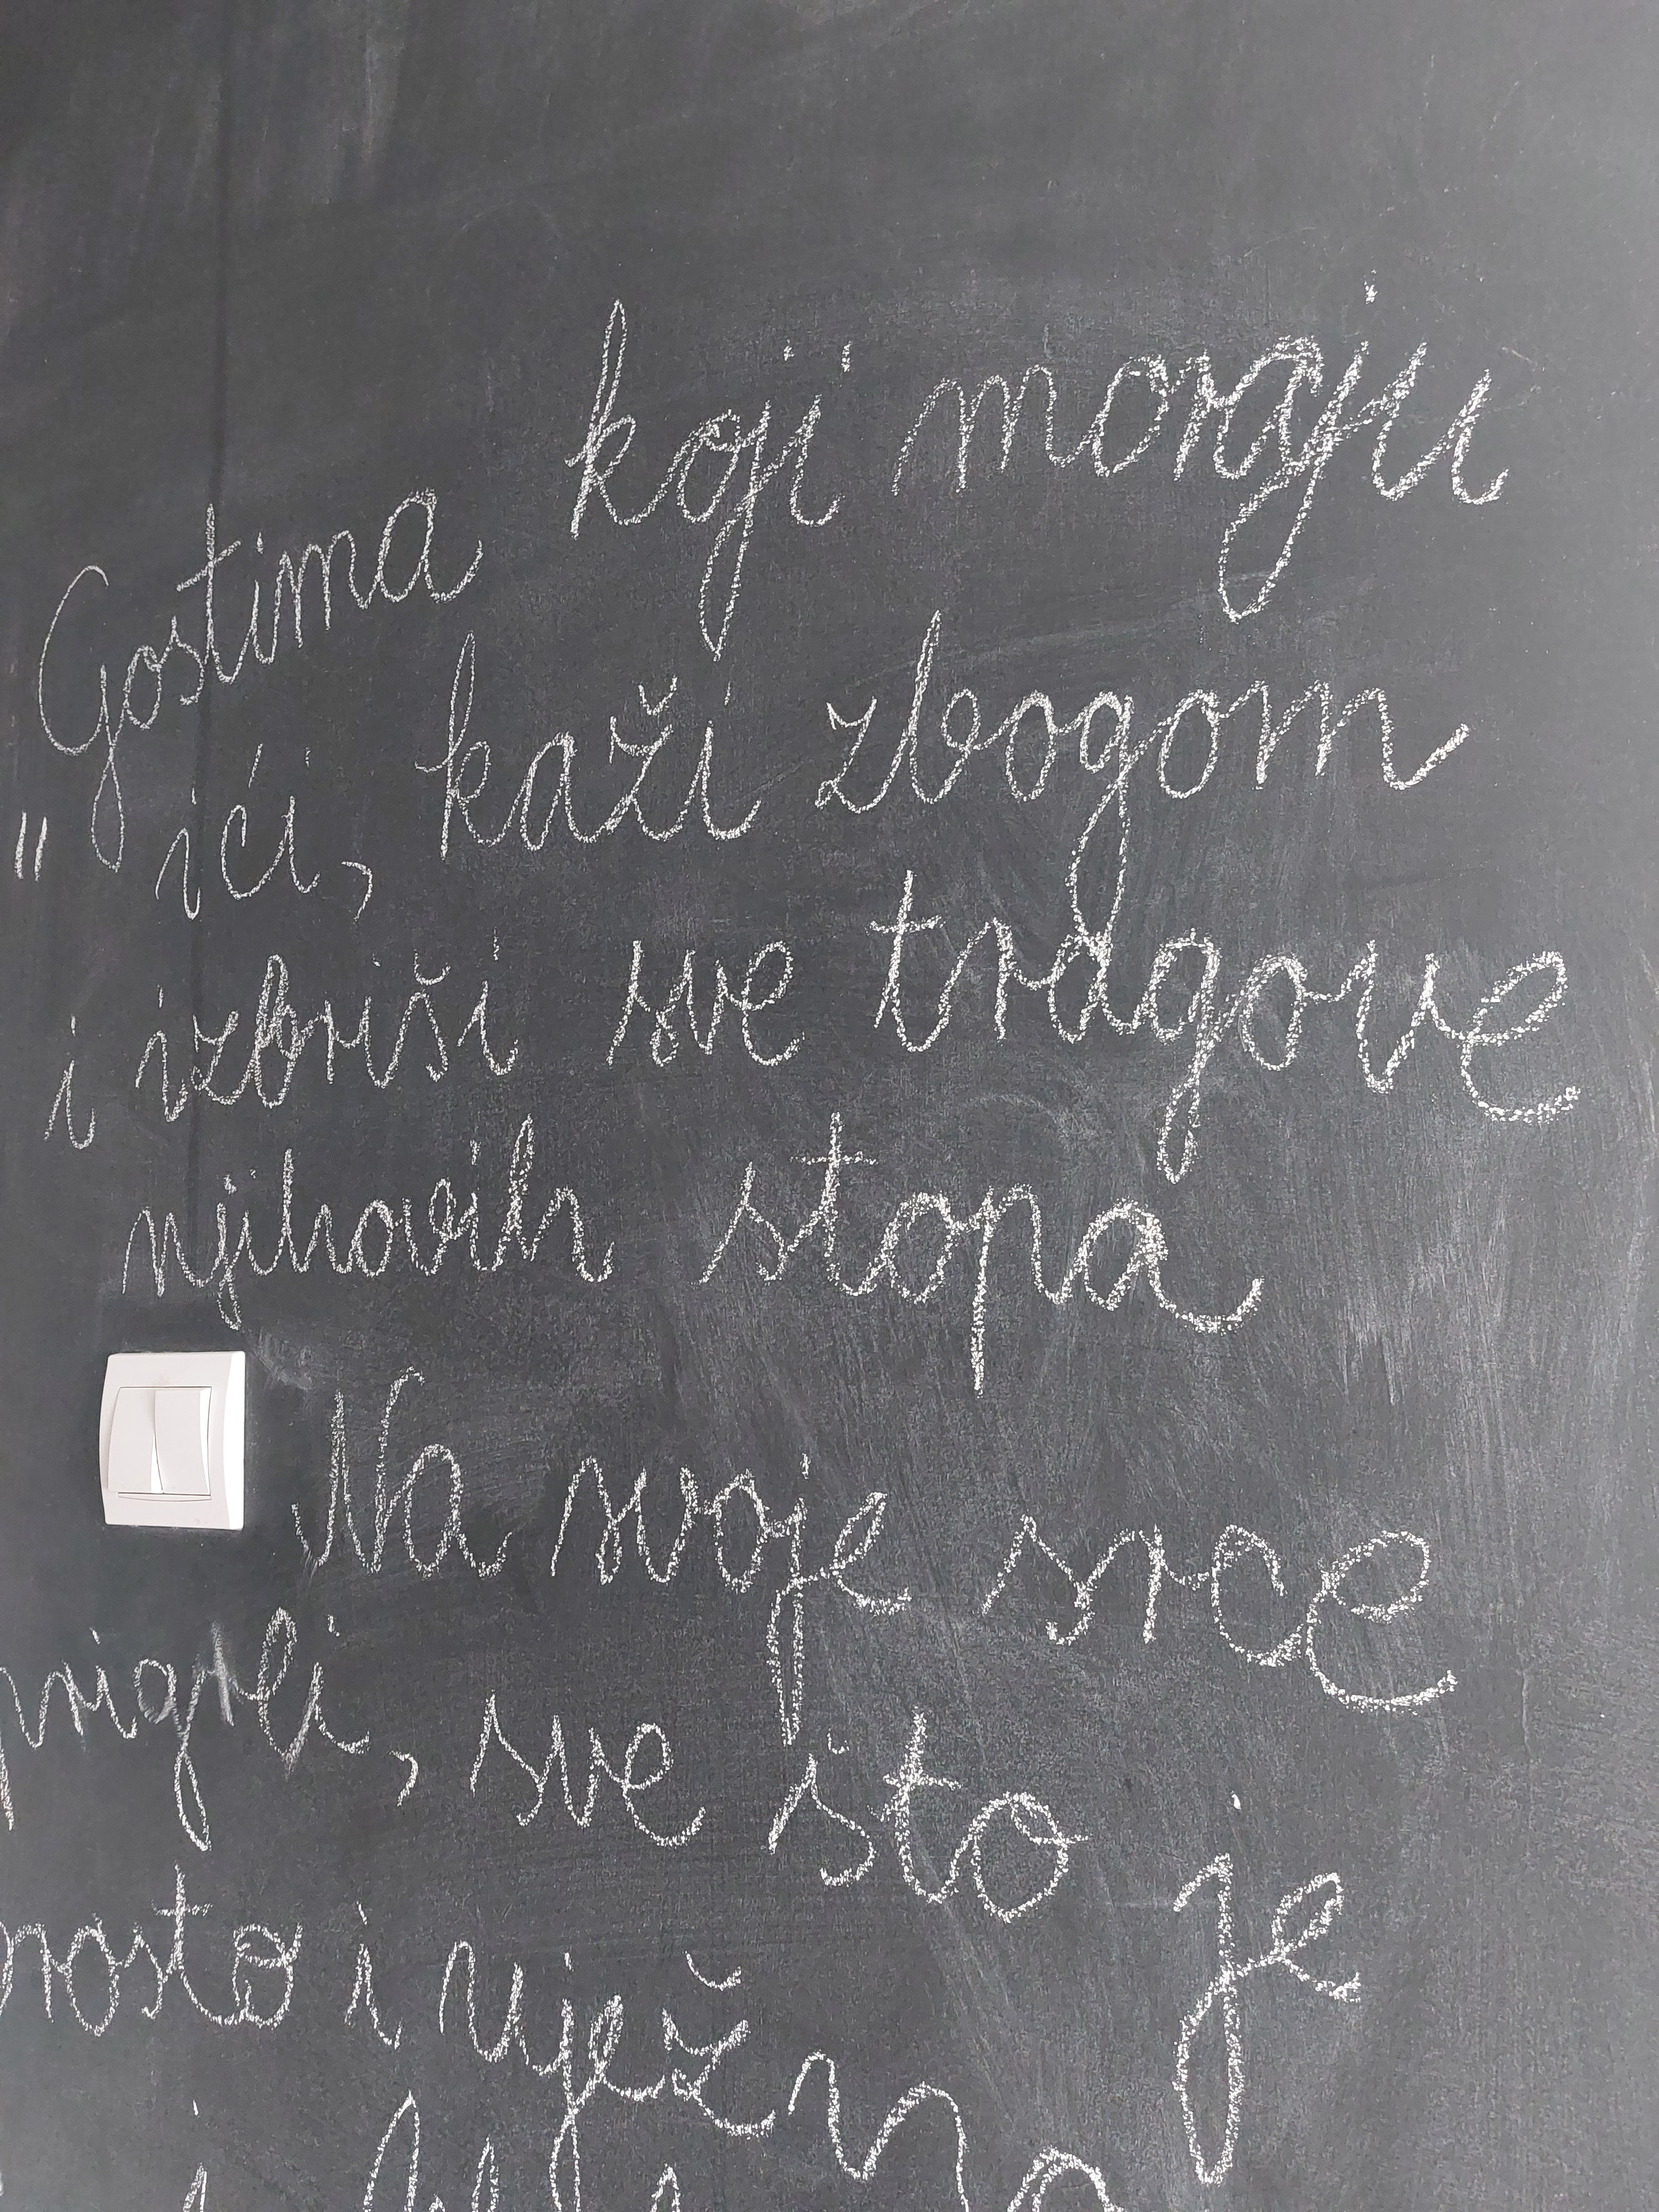 "Gostima koji moraju
ići, kaži zbogom
i izbriši sve tragove
njihovih stopa
Na svoje srce
prigrli, sve što je
prosto i nježno